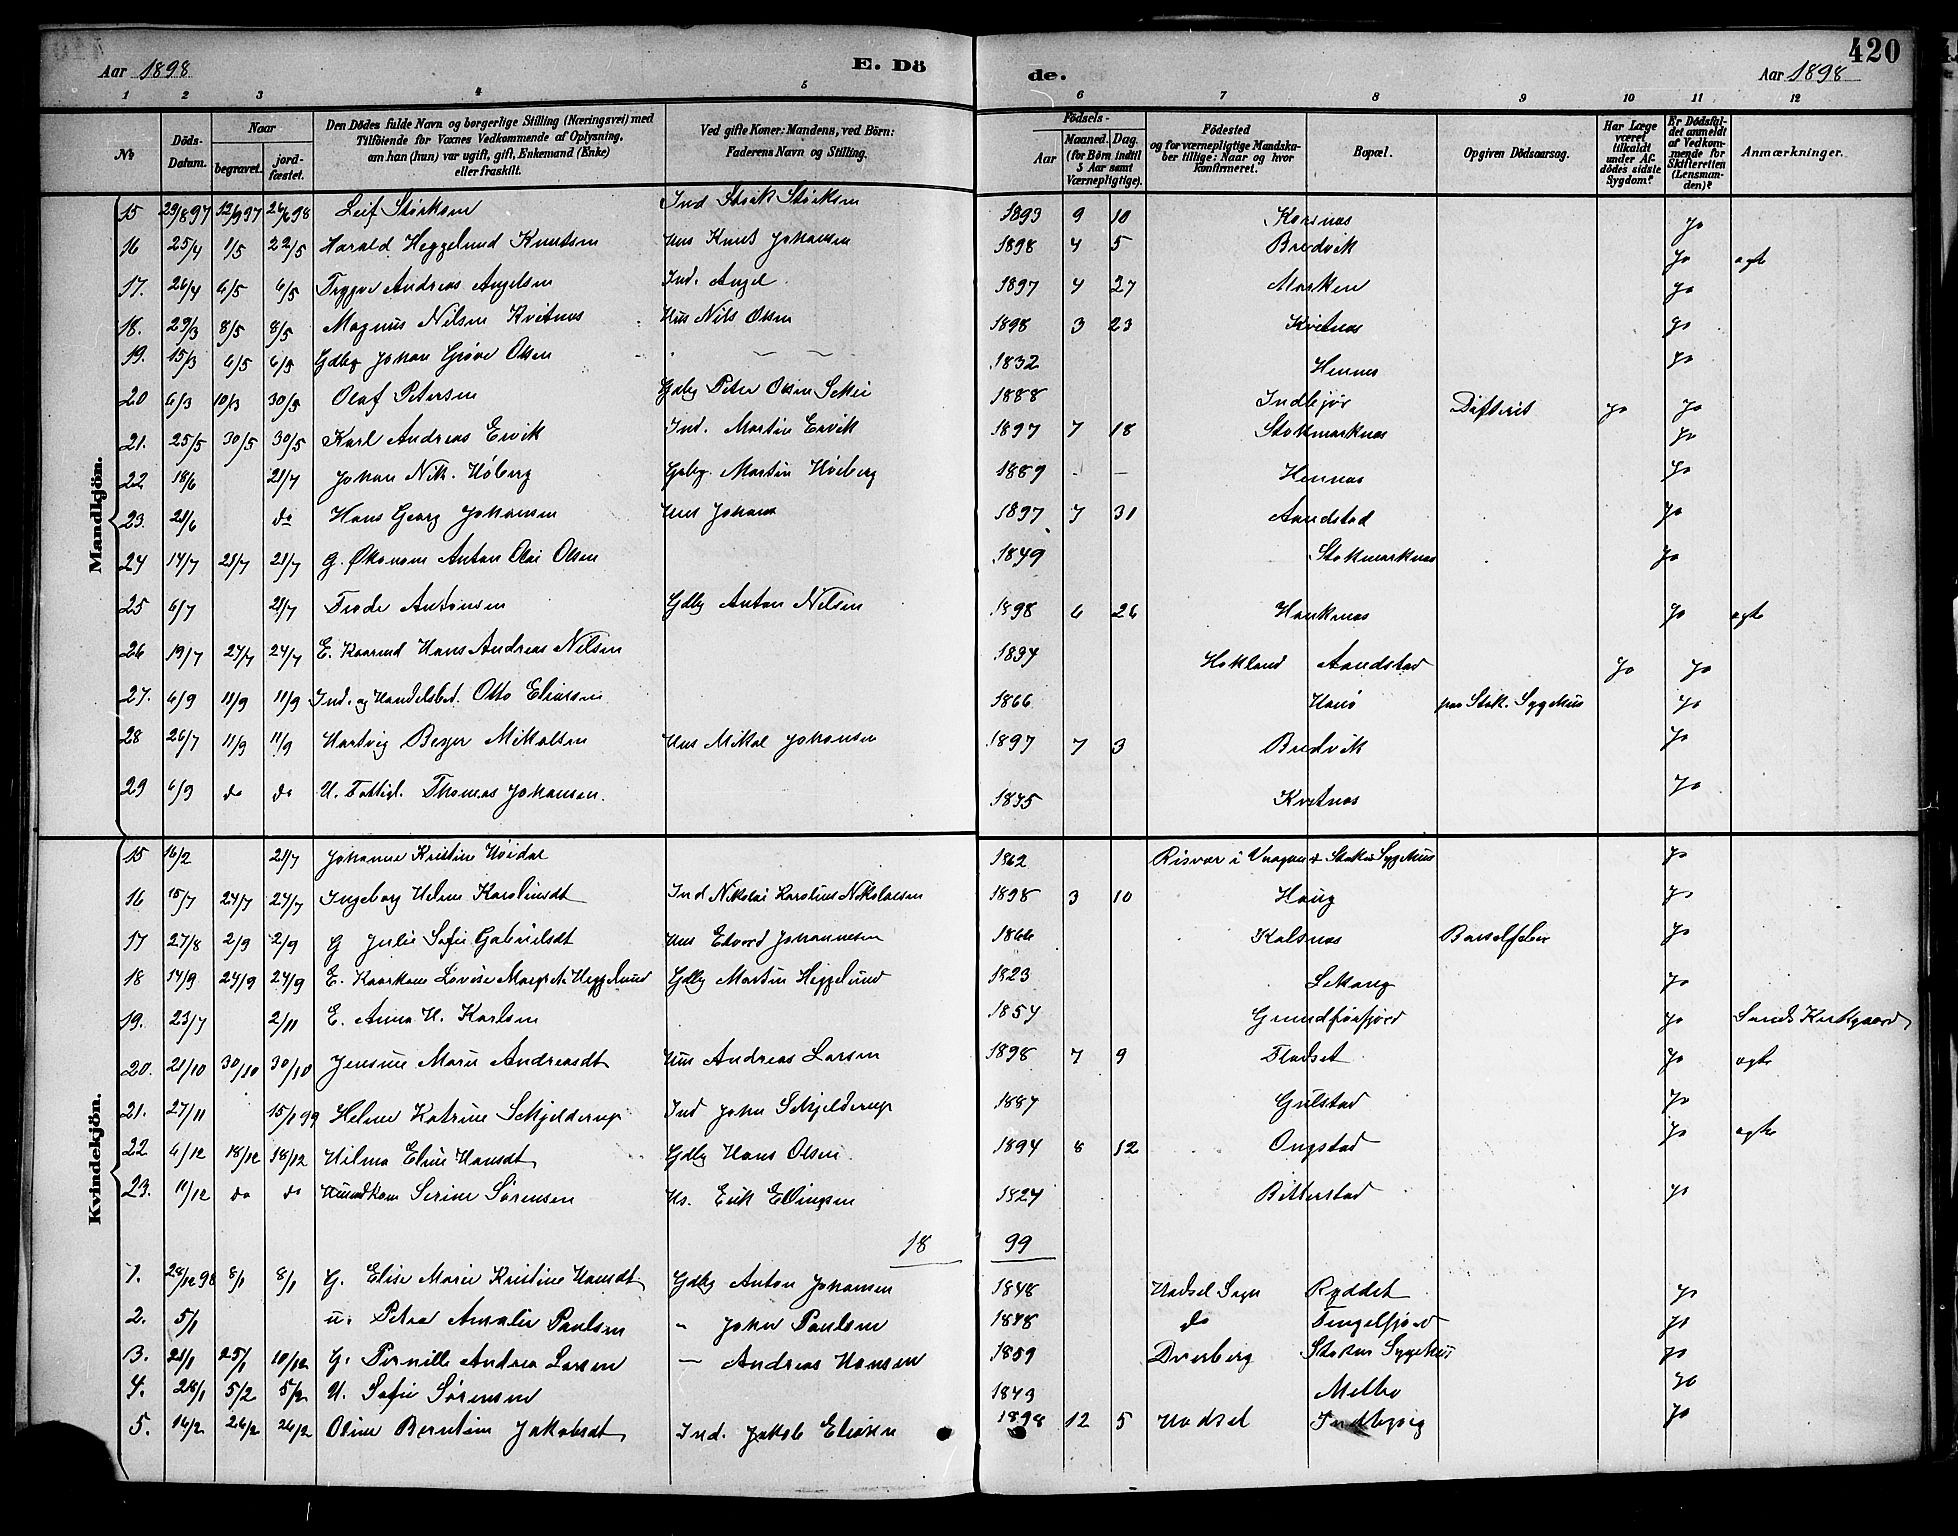 420
Aar 1898 E. Dö de. Aar 1898
1 2 3 4 5 6 7 8 9 10 11 12
No Döds-Datum. Naar begravet. jord-fæstet. Den Dödes fulde Navn og borgerlige Stilling (Næringsvei) med Tilföiende for Voxnes Vedkommende af Oplysning, om han (hun) var ugift, gift, Enkemand (Enke) eller fraskilt. Ved gifte Koner: Mandens, ved Börn: Faderens Navn og Stilling. Födsels- Aar Maaned. Dag. (for Börn indtil 5 Aar samt Værnepligtige). Födested og for værnepligtige Mandska-ber tillige: Naar og hvor konfirmeret. Bopæl. Opgiven Dödsaarsag. Har Læge været tilkaldt under Af-dödes sidste Sygdom? Er Dödsfal-det anmeldt af Vedkom-mende for Skifteretten (Lensman-den)? Anmærkninger.
Mandkjön.
15 29/8 97 12/9 97 26/6 98 Leif Størksen Ind Størk Størksen 1893 9 10 Kornæs Ja
16 25/4 1/5 22/5 Harald Heggelund Knutsen Hus Knut Johansen 1898 4 5 Bredvik Ja ægte
17. 26/4 6/5 6/5 Trygve Andreas Angelsen Ind. Angel 1897 4 27 Masken Ja
18. 29/3 8/5 8/5 Magnus Nilsen Kvitnæs Hus Nils Olsen 1898 3 23 Kvitnæs Ja
19. 15/3 6/5 6/5 Gdbg Johan Grøve Olsen 1832 Hennes Ja
20 6/3 10/3 30/5 Olaf Petersen Gdbg Peter Olsen 1888 Indbjør Difterit Ja Ja
21. 25/5 30/5 30/5 Karl Andreas Ervik Ind. Martin Ervik 1897 7 18 Stokmarknæs Ja
22 18/6 21/7 Johan Nik. Høberg Gdbg. Martin Høiberg 1889 - - Hennæs Ja
23. 21/6 do Hans Georg Johansen Hus Johan 1897 7 31 Aandstad Ja
24 14/7 21/7 21/7 G. Økonom Anton Olai Olsen 1849 Stokmarknæs Ja
25 6/7 21/7 Frode Antonsen Gdbg Anton Nilsen 1898 6 26 Hauknæs Ja ægte
26 19/7 24/7 24/7 E. Kaarmd Hans Andreas Nilsen 1834 Hokland Aandstad Ja Ja
27. 6/9 11/9 11/9 Ind. og Handelsbet. Otto Eliassen 1866 Hanø paa Stok. Sygehus Ja
28 26/7 11/9 11/9 Hartvig Beyer Mikalsen Hus Mikal Johansen 1897 7 3 Bredvik Ja
29 6/9 do do U. Fattigl. Thomas Johansen. 1835 Kvitnæs Ja
Kvindekjön.
15 16/2 21/7 Johanne Kristine Høidal 1862 Risvær i Vaagan Stokm Sygehus Ja
16 15/7 24/7 24/7 Ingeborg Helene Karolinusdt Ind Nikolai Karolius Nikolaisen 1898 3 10 Haug Ja
17 27/8 2/9 2/9 G Julie Sofie Gabrielsdt Hus Edvard Johannesen 1866 Kalsnæs Barselfeber Ja
18 14/9 24/9 24/9 E. Kaarkone Lovise Margrete Heggelund Gdbg Martin Heggelund 1823 Sekang Ja
19. 23/7 2/11 E. Anna H. Karlsen 1854 Grundførfjord Ja Sands Kirkgaard
20. 21/10 30/10 30/10 Jensine Marie Andreasdt Hus Andreas Larsen 1898 7 9 Fladset Ja ægte
21. 27/11 15/1 99 Helene Katrine Schjelderup Ind John Schjelderup 1887 Gulstad Ja
22 6/12 18/12 18/12 Hilma Eline Hansdt Gdbg Hans Olsen 1894 8 12 Ongstad Ja ægte
23. 11/12 do do Serine Sørensen Hs. Erik Ellingsen 1824 Bitterstad Ja
18 99
1. 28/12 98 8/1 8/1 G. Elise Marie Kristine Hansdt Gdbg Anton Johansen 1848 Hadsel Sogn Ryddet Ja
2. 5/1 u. Petra Amalie Paulsen " John Paulsen 1848 do Fingelfjord Ja
3. 21/1 25/1 10/12 G. Pernille Andrea Larsen - Andreas Hansen 1859 Dverberg Stokm Sygehus Ja
4. 28/1 5/2 5/2 U. Sofie Sørensen 1843 Melbo Ja
5. 14/2 26/2 26/2 Oline Berntine Jakobsdt Ind. Jakob Eliasen 1898 12 5 Hadsel Ja